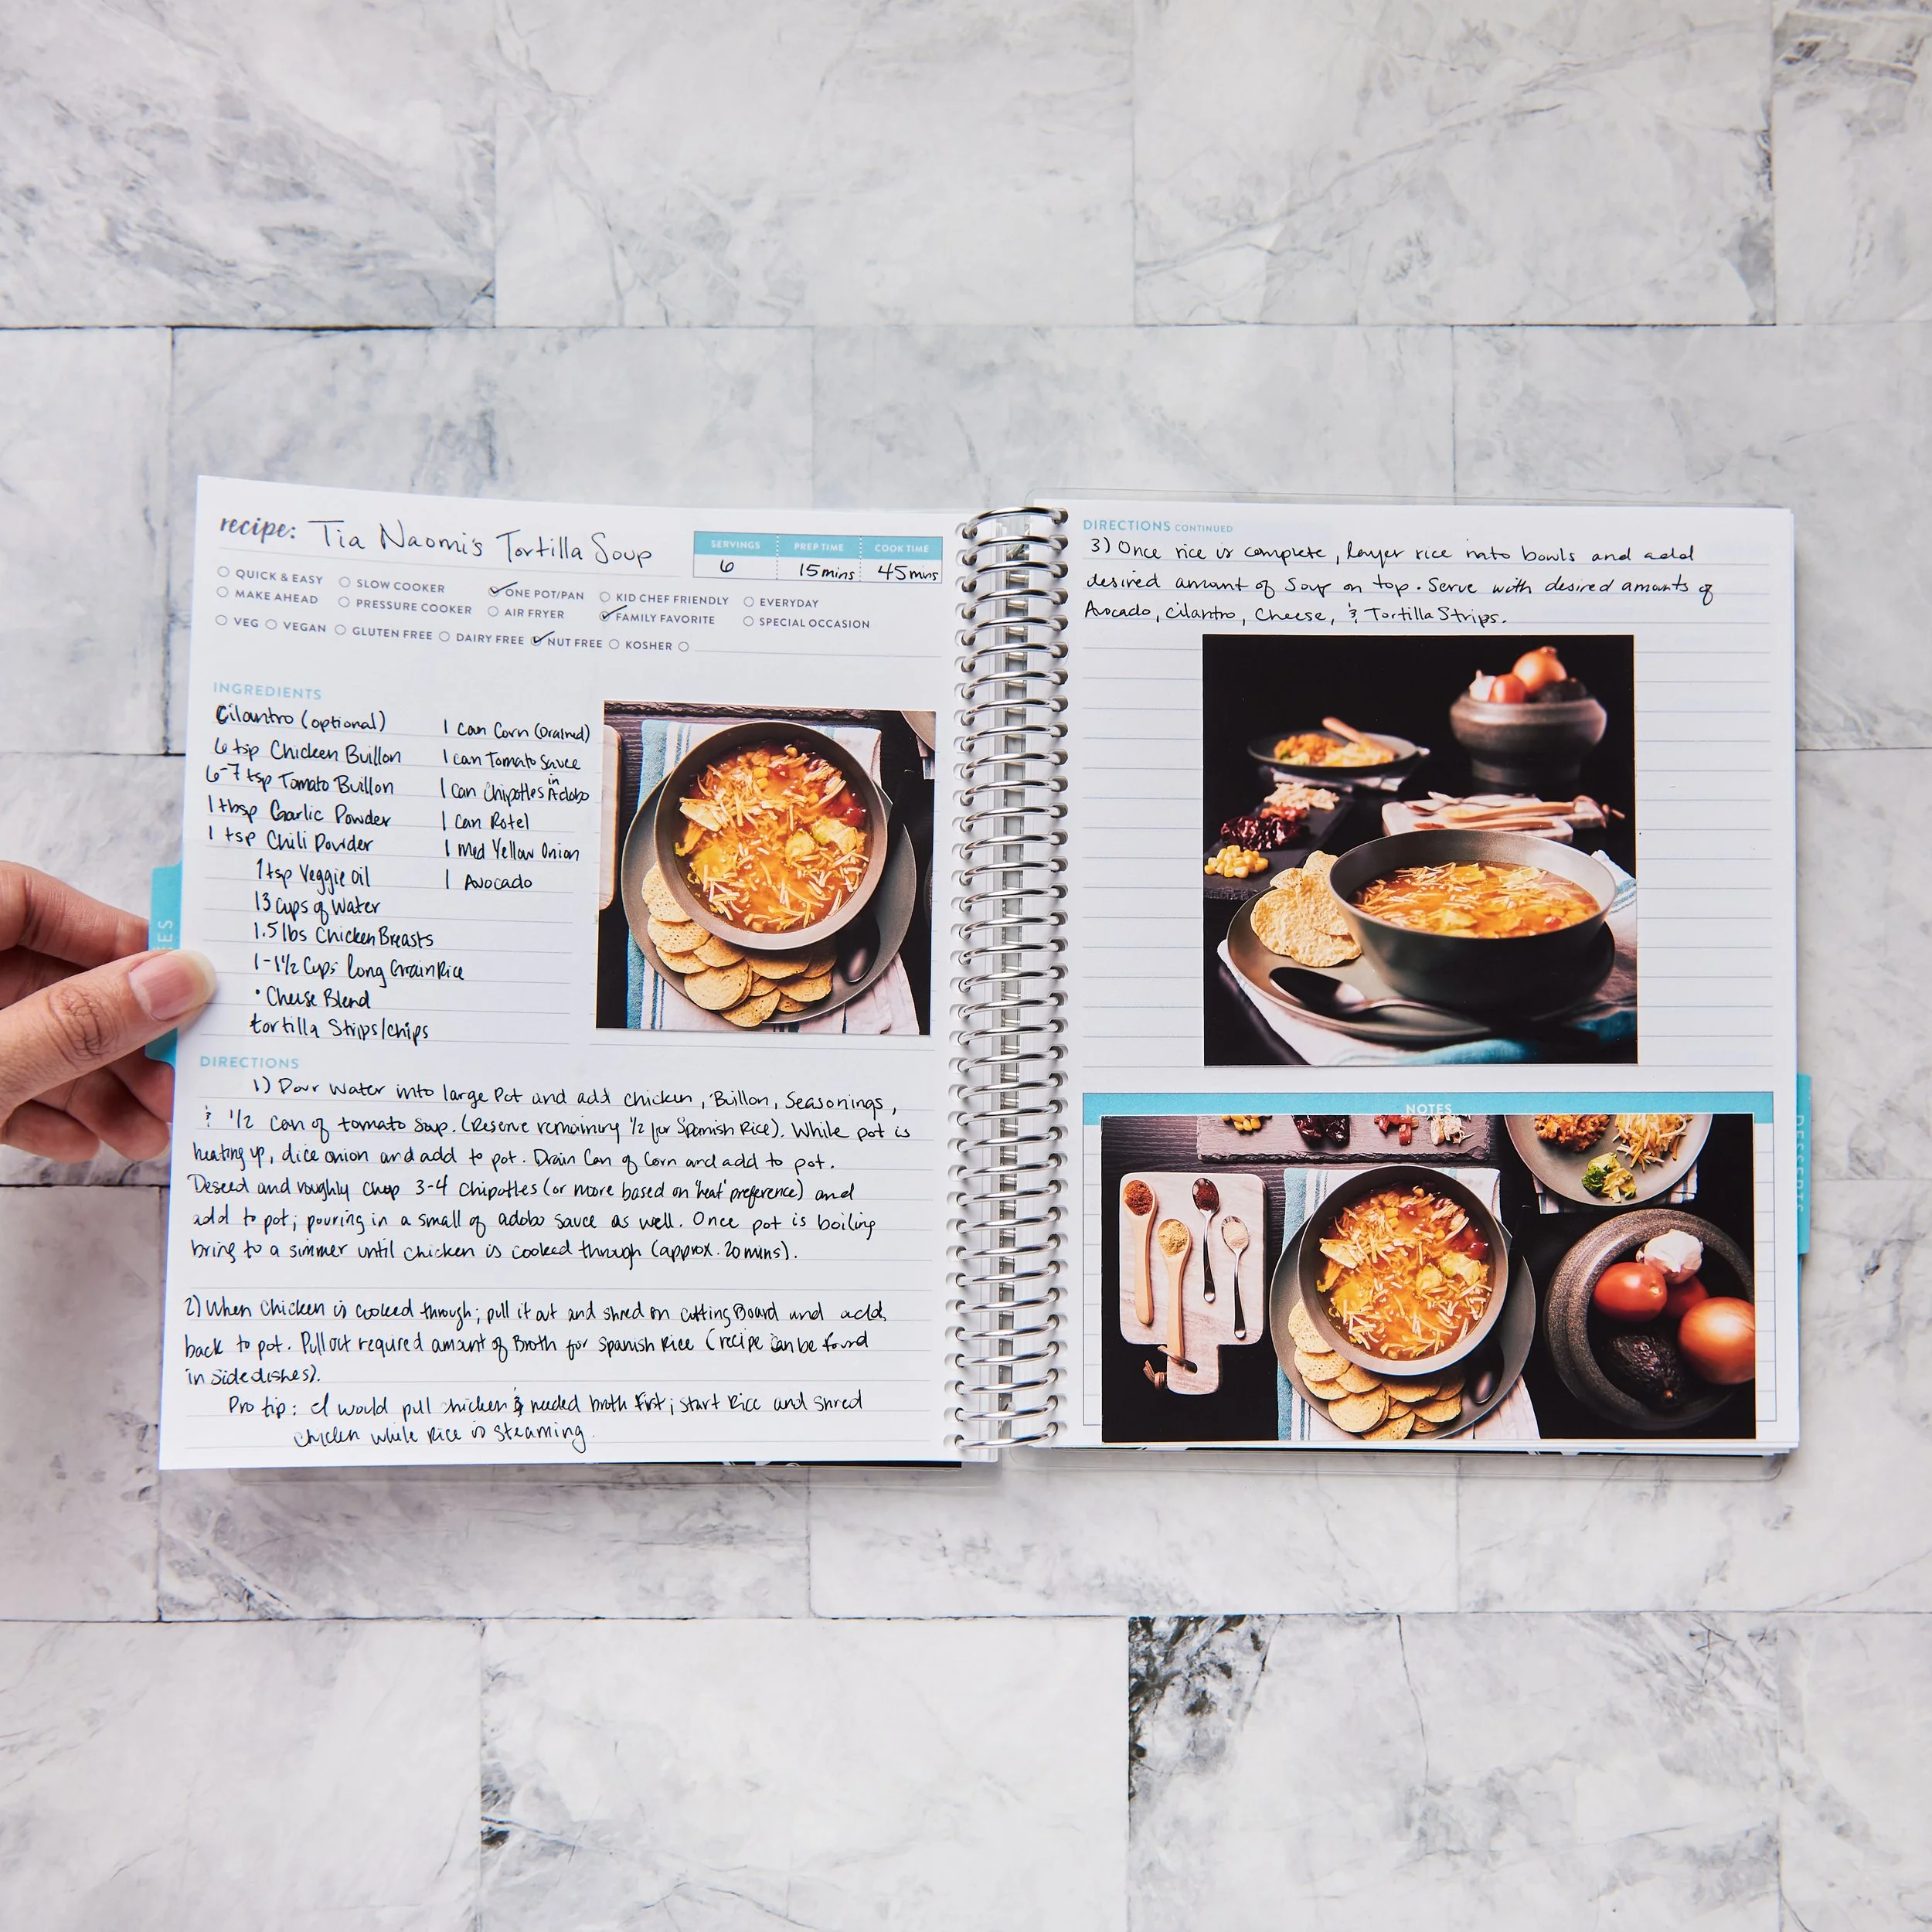 recipe: Tia Naomi's Tortilla Soup
SERVINGS PREP TIME COOK TIME
6 15 mins 45 mins
QUICK & EASY SLOW COOKER ONE POT/PAN KID CHEF FRIENDLY EVERYDAY
MAKE AHEAD PRESSURE COOKER AIR FRYER FAMILY FAVORITE SPECIAL OCCASION
VEG VEGAN GLUTEN FREE DAIRY FREE NUT FREE KOSHER
INGREDIENTS
Cilantro (optional)
6 tsp Chicken Buillon
6-7 tsp Tomato Buillon
1 tbsp Garlic Powder
1 tsp Chili Powder
1 tsp Veggie Oil
13 cups of Water
1.5 lbs Chicken Breasts
1-1½ Cups long Grain Rice
• Cheese Blend
tortilla Strips/chips
1 Can Corn (Drained)
1 can Tomato Sauce
1 Can Chipotles in Adobo
1 Can Rotel
1 Med Yellow Onion
1 Avocado
DIRECTIONS
1) Pour water into large Pot and add chicken, Buillon, Seasonings,
& 1/2 Can of tomato Soup. (Reserve remaining 1/2 for Spanish Rice). While pot is
heating up, dice onion and add to pot. Drain Can of Corn and add to pot.
Deseed and roughly chop 3-4 Chipotles (or more based on 'heat' preference) and
add to pot; pouring in a small of adobo sauce as well. Once pot is boiling
bring to a simmer until chicken is cooked through (approx. 20 mins).
2) When Chicken is cooked through; pull it out and shred on cutting Board and add
back to pot. Pull out required amount of Broth for Spanish Rice (recipe can be found
in side dishes).
Pro tip: I would pull chicken & needed broth first; start Rice and shred
chicken while Rice is steaming.
DIRECTIONS CONTINUED
3) Once rice is complete, layer rice into bowls and add
desired amount of Soup on top. Serve with desired amounts of
Avocado, cilantro, Cheese, & Tortilla Strips.
NOTES
DESSERTS